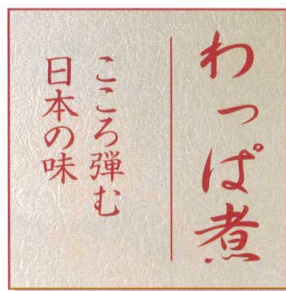 わっぱ煮
こころ弾む
日本の味